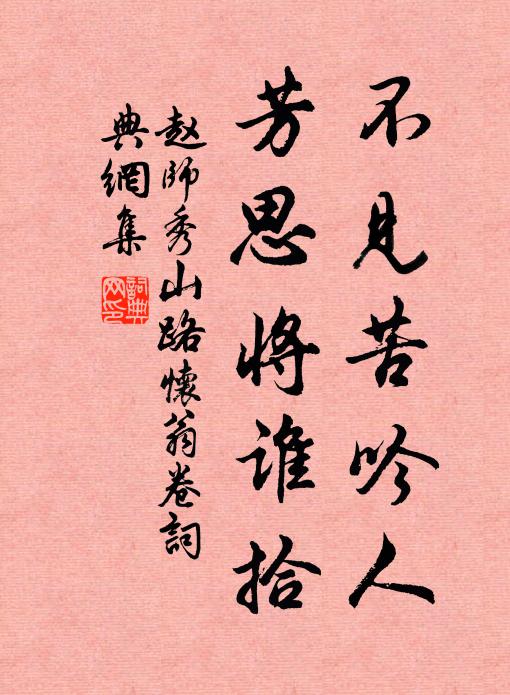 不见苦吟人
芳思将谁拾
赵师秀山路怀翁卷词
典网集
词典网印